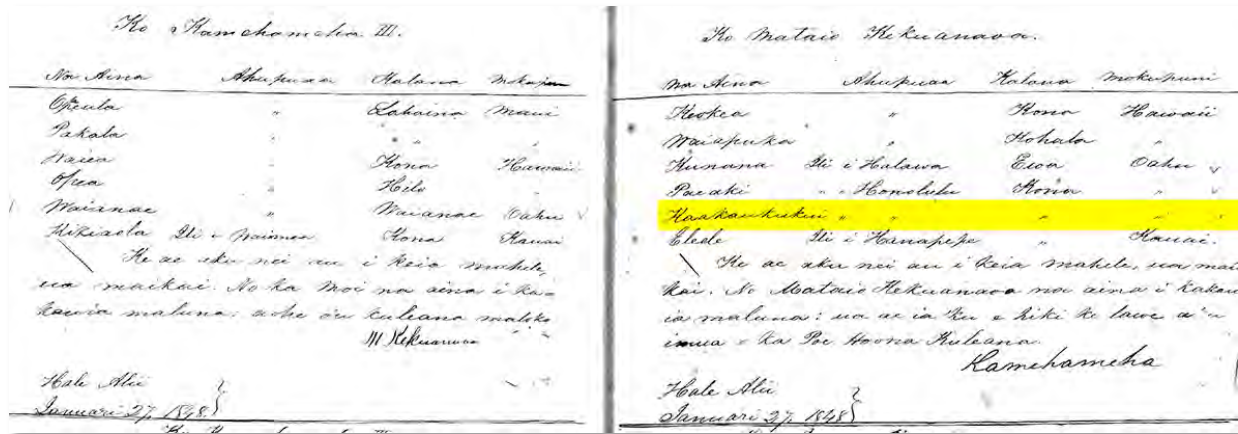 Ko Kamehameha III.
Na Aina Ahupuaa Kalana Mokupuni
Opeula " Lahaina Maui
Pakala " " "
Waiea " Kona Hawaii
Opea " Hilo "
Waianae " Waianae Oahu
Kikiaola Ili i Waimea Kona Kauai
Ke ae aku nei au i keia mahele,
ua maikai. No ka Moi na aina i ka-
kauia maluna: aohe o'u kuleana maloko
M Kekuanaoa
Hale Alii
Januari 27. 1848.
Ko Mataio Kekuanaoa.
Na Aina Ahupuaa Kalana Mokupuni
Keokea " Kona Hawaii
Waiapuka " Kohala "
Kunana Ili i Halawa Ewa Oahu
Paeaki " " Honolulu Kona "
Kaakaukukui " " " "
Eleele Ili i Hanapepe " Kauai.
Ke ae aku nei au i keia mahele, ua mai
kai. No Mataio Kekuanaoa na aina i kakau
ia maluna: ua ae ia'ku e hiki ke lawe a'u
imua o ka Poe Hoona Kuleana.
Kamehameha
Hale Alii
Januari 27. 1848